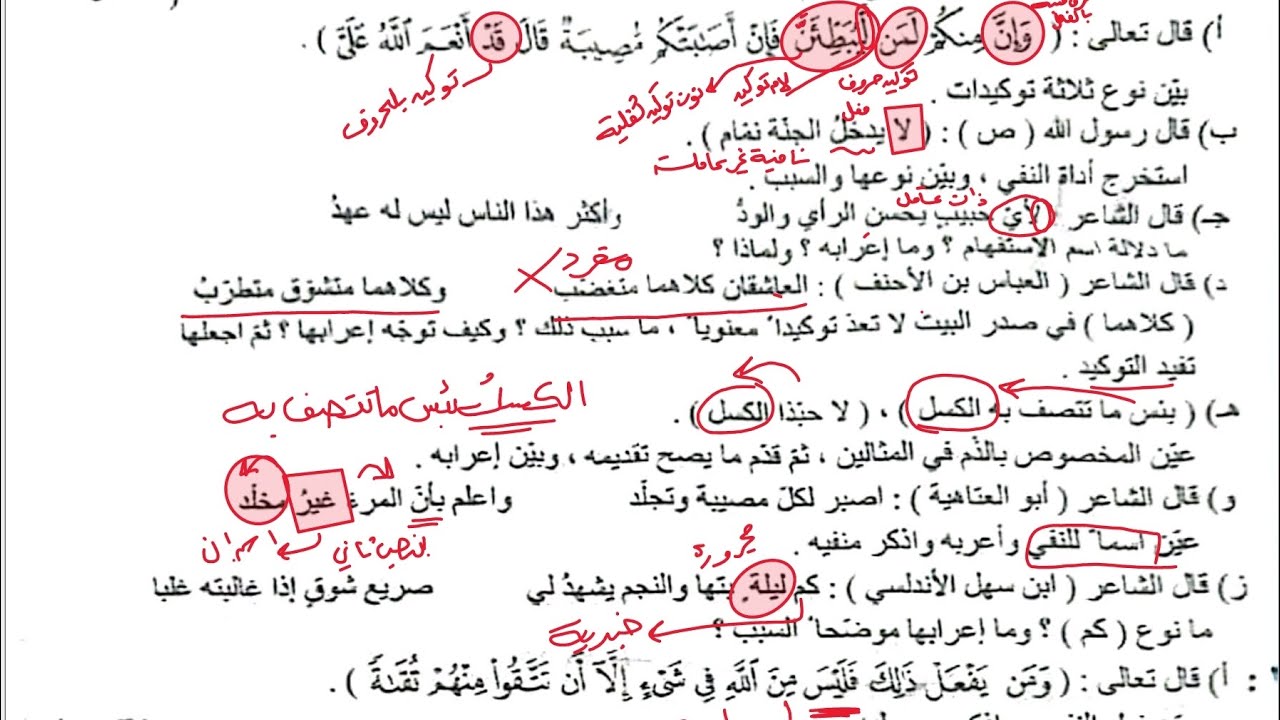 أ) قال تعالى : ( وَإِنَّ مِنكُمْ لَمَن لَّيُبَطِّئَنَّ فَإِنْ أَصَابَتْكُم مُّصِيبَةٌ قَالَ قَدْ أَنْعَمَ اللَّهُ عَلَيَّ ) .
توكيد بالحروف
لام توكيد
نون توكيد ثقيلة
توكيد بالحروف
بيّن نوع ثلاثة توكيدات .
فعل
ب) قال رسول الله ( ص ) : ( لا يدخلُ الجنّة نمّام ) .
نافية غير عاملة
استخرج أداة النفي ، وبيّن نوعها والسبب .
ذات عاقل
جـ) قال الشاعر ( لأيّ حبيبٍ يحسن الرأي والودُّ وأكثر هذا الناس ليس له عهدُ
ما دلالة اسم الاستفهام ؟ وما إعرابه ؟ ولماذا ؟
مفرد
د) قال الشاعر ( العباس بن الأحنف ) : العاشقان كلاهما متغضّب وكلاهما متشوّق متطرّبُ
( كلاهما ) في صدر البيت لا تعدّ توكيداً معنوياً ، ما سبب ذلك ؟ وكيف توجّه إعرابها ؟ ثمّ اجعلها
تفيد التوكيد .
الكسلُ بئس ما تتصف به
هـ) ( بئس ما تتصف به الكسل ) ، ( لا حبّذا الكسل ) .
عيّن المخصوص بالذّم في المثالين ، ثمّ قدّم ما يصح تقديمه ، وبيّن إعرابه .
و) قال الشاعر ( أبو العتاهية ) : اصبر لكلّ مصيبة وتجلّد واعلم بأنّ المرءَ غيرُ مخلّد
عيّن اسماً للنفي وأعربه واذكر منفيه .
مجرورة
ز) قال الشاعر ( ابن سهل الأندلسي ) : كم ليلةٍ بتها والنجم يشهدُ لي صريع شوقٍ إذا غالبته غلبا
خبرية
ما نوع ( كم ) ؟ وما إعرابها موضّحاً السبب ؟
: أ) قال تعالى : ( وَمَن يَفْعَلْ ذَلِكَ فَلَيْسَ مِنَ اللَّهِ فِي شَيْءٍ إِلَّا أَن تَتَّقُوا مِنْهُمْ تُقَاةً ) .